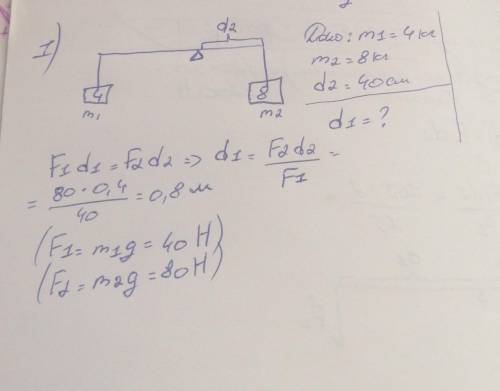 1)
d2
4
m1
8
m2
Дано: m1 = 4 кг
m2 = 8 кг
d2 = 40 см
d1 = ?
F1d1 = F2d2 => d1 = F2d2/F1 =
= 80·0,4/40 = 0,8 м
(F1 = m1g = 40 H)
(F2 = m2g = 80 H)